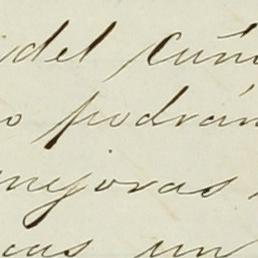 del Cuñ
o podrán
mejoras
cas un